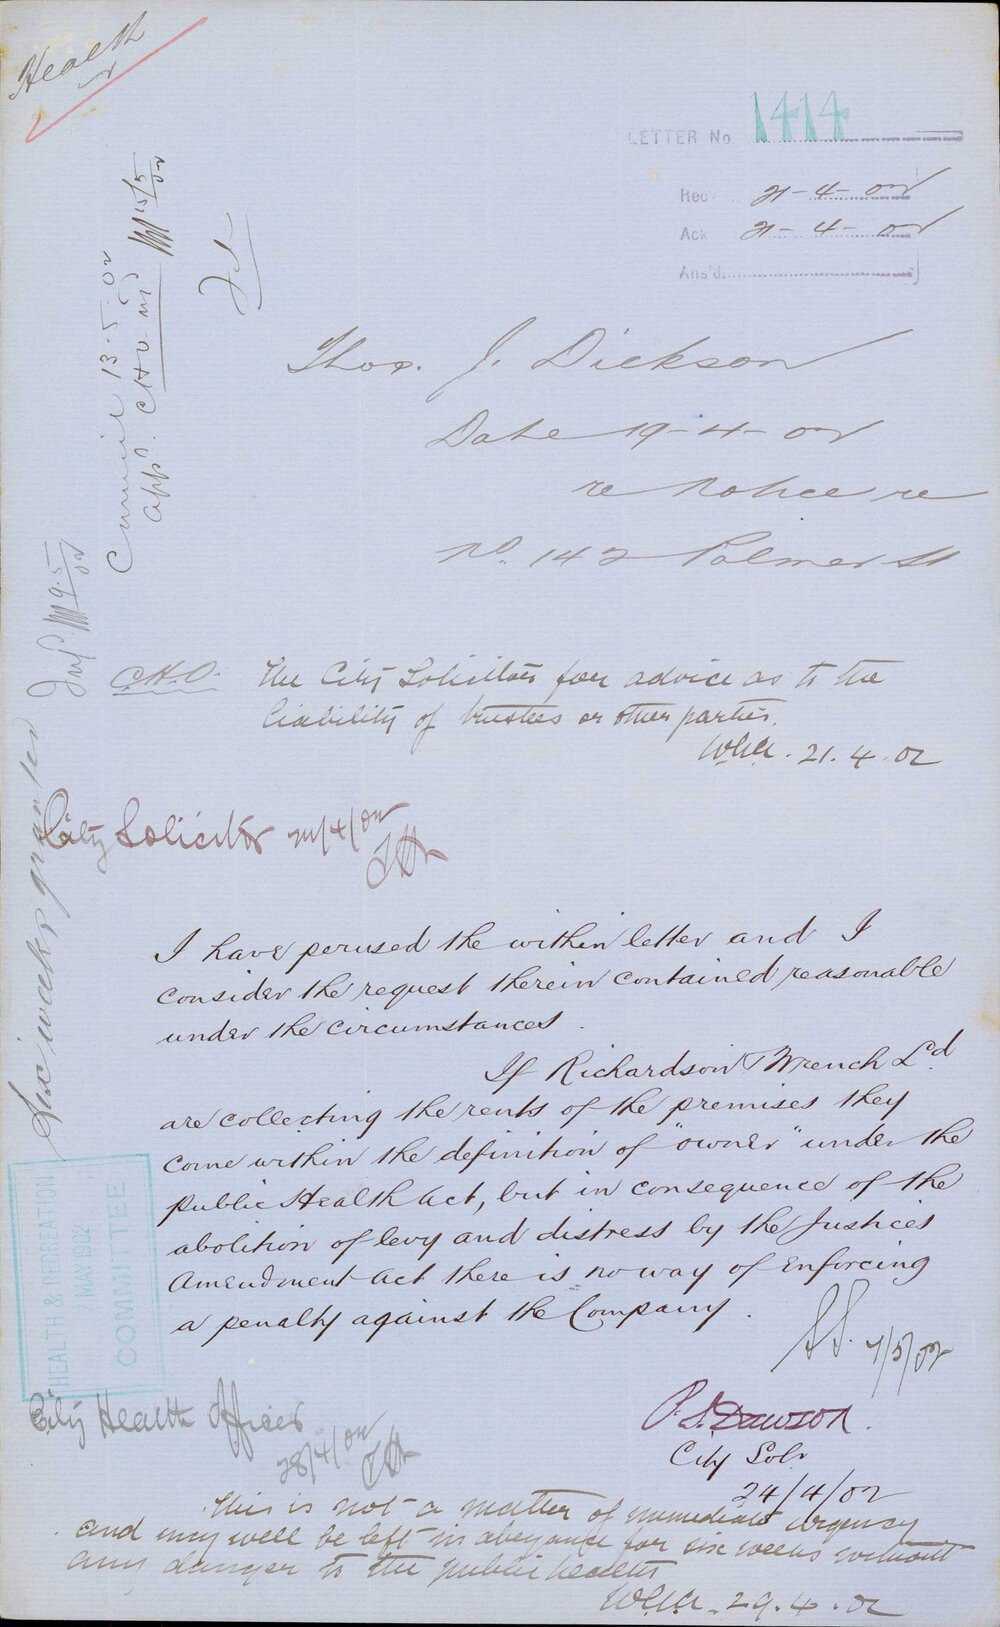 Health
LETTER No 1414
Rec 21-4-02
Ack 21-4-02
Ans'd
Thos. J. Dickson
Date 19-4-02
re notice re
No. 142 Palmer St
Council 13.5.02
App'd CHO
15/5/02
Inf'd 9.5/02
Six weeks granted
C.H.O. The City Solicitors for advice as to the
liability of trustees or other parties.
WGA. 21.4.02
City Solicitor 22/4/02
I have perused the within letter and I
consider the request therein contained reasonable
under the circumstances.
If Richardson & Wrench Ld.
are collecting the rents of the premises they
come within the definition of "owner" under the
Public Health Act, but in consequence of the
abolition of levy and distress by the Justices
Amendment Act there is no way of enforcing
a penalty against the Company.
7/5/02
HEALTH & RECREATION
7 MAY 1902
COMMITTEE
P. S. Dawson.
City Solr
24/4/02
City Health Officer
28/4/02
This is not a matter of immediate urgency
and may well be left in abeyance for six weeks without
any danger to the public health
WGA. 29.4.02